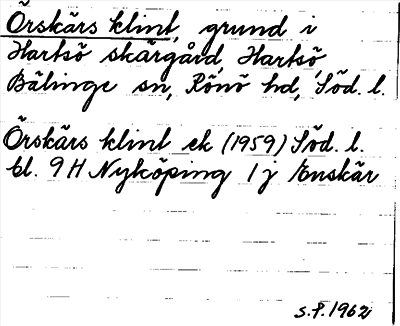 Örskärs klint, grund i
Hartsö skärgård, Hartsö,
Bälinge sn, Rönö hd, Söd. l.
Örskärs klint ek (1959) Söd. l.
bl. 9 H Nyköping 1 j Enskär
S.P. 1962